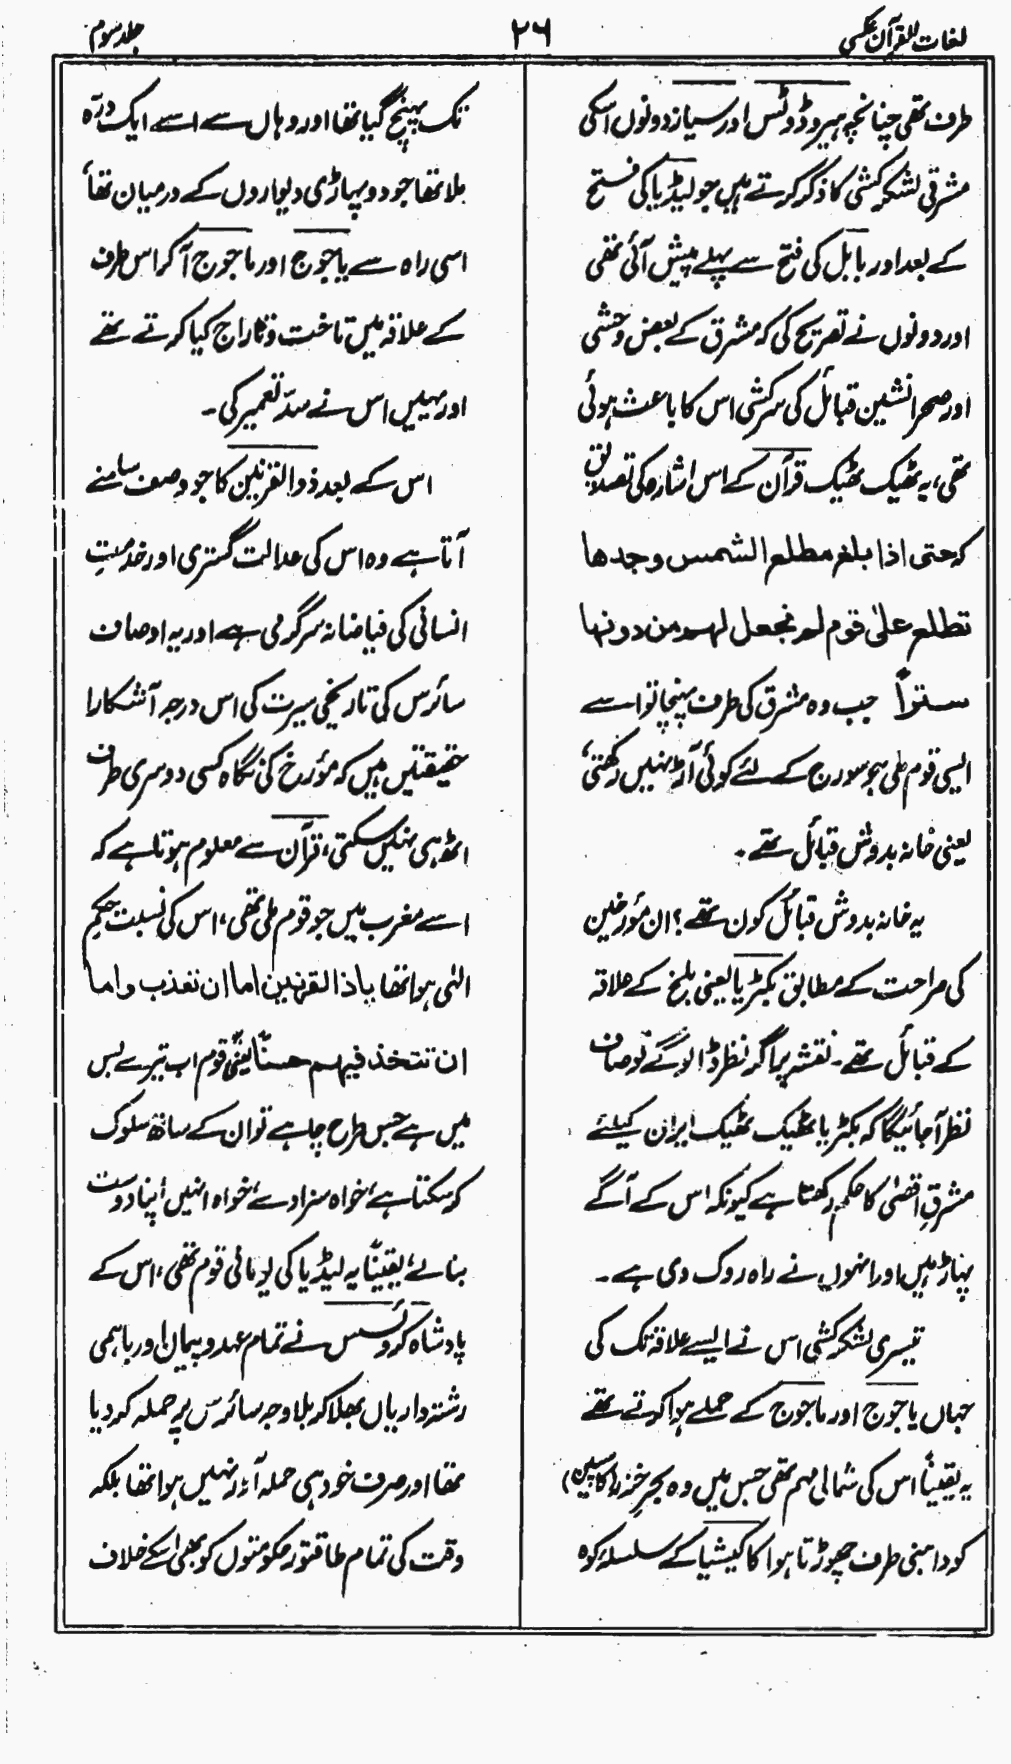 لغات القرآن عکسی
۲۶
جلد سوم
طرف تھی چنانچہ ہیروڈوٹس اور سیاز دونوں اسکی
مشرقی لشکر کشی کا ذکر کرتے ہیں جو لیڈیا کی فتح
کے بعد اور بابل کی فتح سے پہلے پیش آئی تھی
اور دونوں نے تصریح کی کہ مشرق کے بعض وحشی
اور صحرا نشین قبائل کی سرکشی اس کا باعث ہوئی
تھی، یہ ٹھیک ٹھیک قرآن کے اس اشارہ کی تصدیق
کہ حتی اذا بلغ مطلع الشمس وجدھا
تطلع علیٰ قوم لم نجعل لہم من دونہا
سترًا جب وہ مشرق کی طرف پہنچا تو اسے
ایسی قوم ملی جو سورج کے لئے کوئی آڑ نہیں رکھتی،
یعنی خانہ بدوش قبائل تھے۔
یہ خانہ بدوش قبائل کون تھے؟ ان مؤرخین
کی صراحت کے مطابق بکٹریا یعنی بلخ کے علاقہ
کے قبائل تھے۔ نقشہ پر اگر نظر ڈالو گے تو صاف
نظر آ جائیگا کہ بکٹریا ٹھیک ٹھیک ایران کیلئے
مشرقِ اقصیٰ کا حکم رکھتا ہے کیونکہ اس کے آگے
پہاڑ ہیں اور انہوں نے راہ روک دی ہے۔
تیسری لشکر کشی اس نے ایسے علاقہ تک کی
جہاں یاجوج اور ماجوج کے حملے ہوا کرتے تھے
یہ یقیناً اس کی شمالی مہم تھی جس میں وہ بحر خزر (کاسپین)
کو داہنی طرف چھوڑتا ہوا کاکیشیا کے سلسلہ کوہ
تک پہنچ گیا تھا اور وہاں سے اسے ایک درّہ
ملا تھا جو دو پہاڑی دیواروں کے درمیان تھا،
اسی راہ سے یاجوج اور ماجوج آ کر اس طرف
کے علاقہ میں تاخت و تاراج کیا کرتے تھے
اور یہیں اس نے سدّ تعمیر کی۔
اس کے بعد ذوالقرنین کا جو وصف سامنے
آتا ہے وہ اس کی عدالت گستری اور خدمتِ
انسانی کی فیاضانہ سرگرمی ہے اور یہ اوصاف
سائرس کی تاریخی سیرت کی اس درجہ آشکارا
حقیقتیں ہیں کہ مؤرخ کی نگاہ کسی دوسری طرف
اٹھ ہی نہیں سکتی، قرآن سے معلوم ہوتا ہے کہ
اسے مغرب میں جو قوم ملی تھی، اس کی نسبت حکمِ
الٰہی ہوا تھا یاذا القرنین اما ان تعذب واما
ان تتخذ فیہم حسنًا یعنی یہ قوم اب تیرے بس
میں ہے جس طرح چاہے تو ان کے ساتھ سلوک
کر سکتا ہے، خواہ سزا دے، خواہ انہیں اپنا دوست
بنالے، یقیناً یہ لیڈیا کی یونانی قوم تھی، اس کے
پادشاہ کروئسس نے تمام عہد و پیمان اور باہمی
رشتہ داریاں بھلا کر بلاوجہ سائرس پر حملہ کر دیا
تھا اور صرف خود ہی حملہ آور نہیں ہوا تھا بلکہ
وقت کی تمام طاقتور حکومتوں کو بھی اسکے خلاف